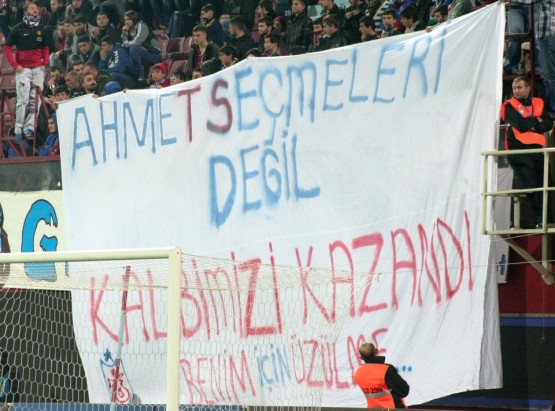 AHMET SEÇMELERİ
DEĞİL
KALBİMİZİ KAZANDI
BENİM İÇİN ÜZÜLME...